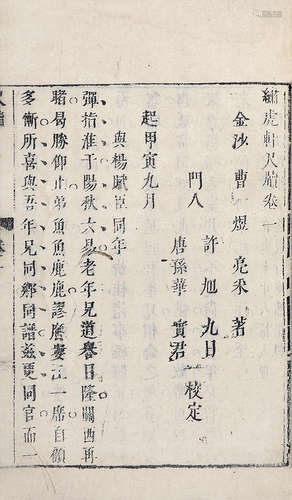 繡虎軒尺牘卷一
金沙曹煜亮采著
門人
許旭九日
唐孫華實君
校定
起甲寅九月
與楊賦臣同年
彈指淮干陽秋六易老年兄道譽日隆關西再
睹曷勝仰止弟魚魚鹿鹿謬膺婁江一席自顧
多慚所喜與吾年兄同鄉同譜茲更同官而一